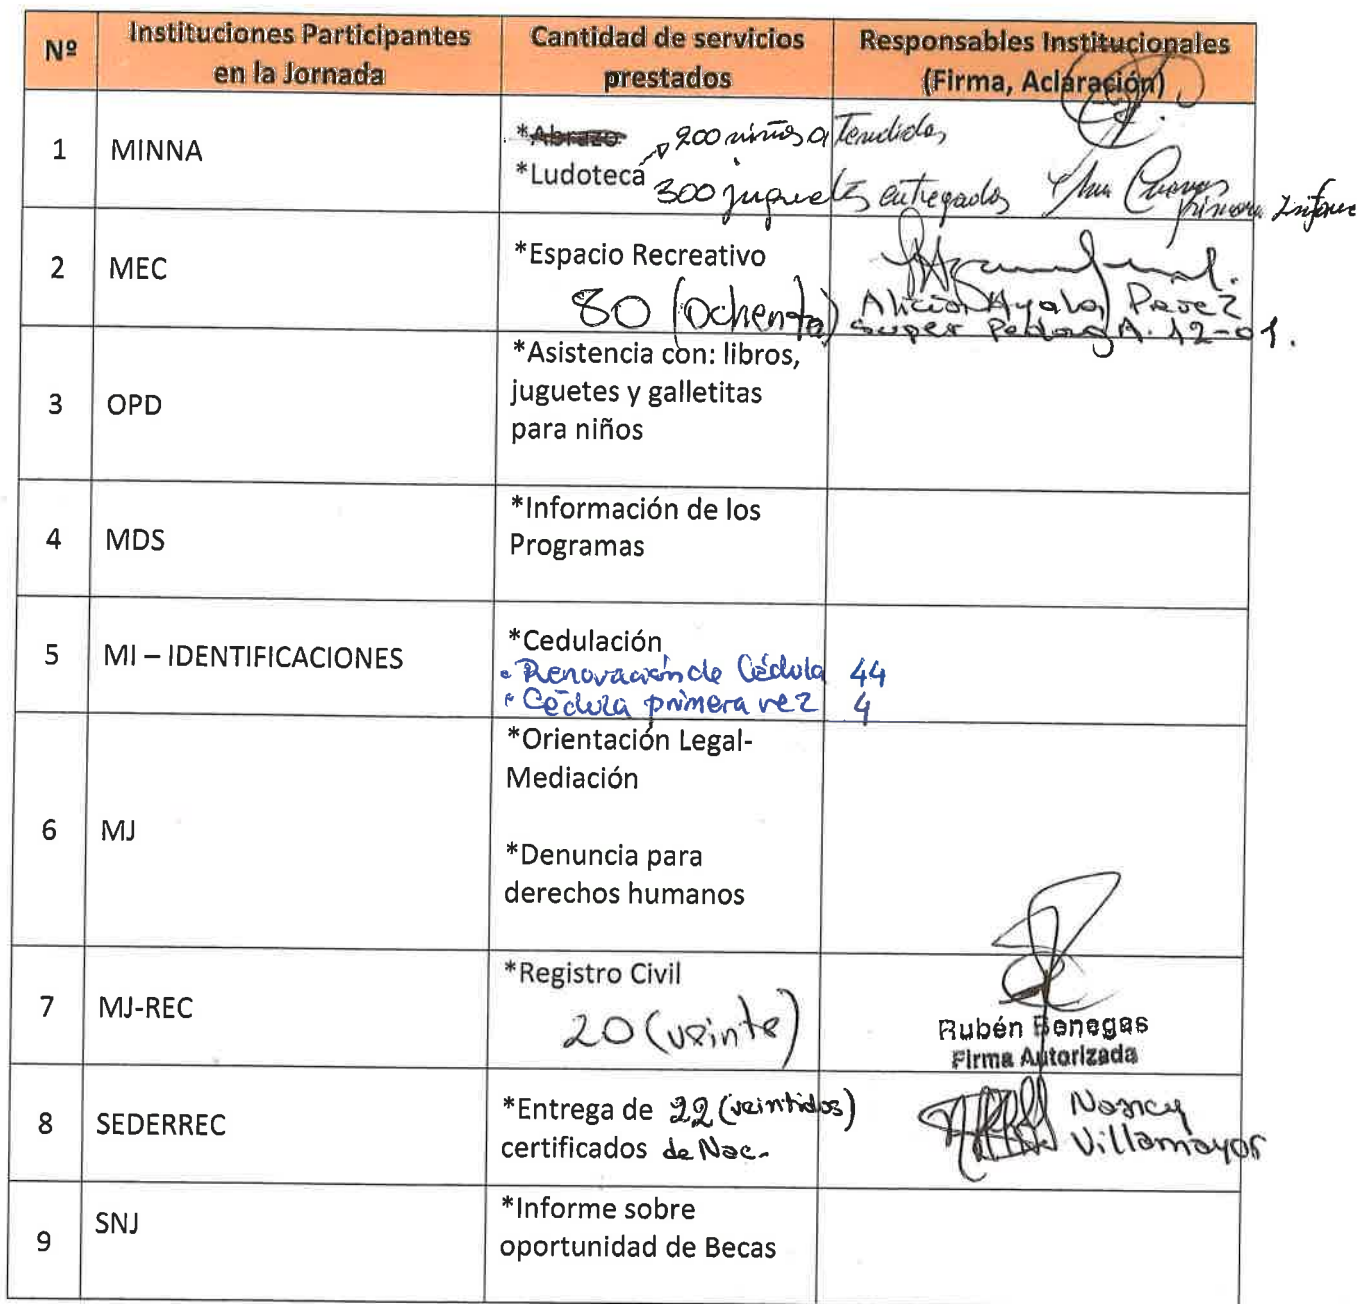 Nº
Instituciones Participantes
en la Jornada
Cantidad de servicios
prestados
Responsables Institucionales
(Firma, Aclaración)
1
MINNA
*Abrazo
200 niños atendidos
*Ludoteca
300 juguetes entregados
2
MEC
*Espacio Recreativo
80 (Ochenta)
Alicia Ayala Perez
Super Pedag A. 12-01.
3
OPD
*Asistencia con: libros,
juguetes y galletitas
para niños
4
MDS
*Información de los
Programas
5
MI – IDENTIFICACIONES
*Cedulación
• Renovación de Cédula 44
• Cédula primera vez 4
6
MJ
*Orientación Legal-
Mediación
*Denuncia para
derechos humanos
7
MJ-REC
*Registro Civil
20 (veinte)
Rubén Benegas
Firma Autorizada
8
SEDERREC
*Entrega de 22 (veintidos)
certificados de Nac.
Nancy
Villamayor
9
SNJ
*Informe sobre
oportunidad de Becas